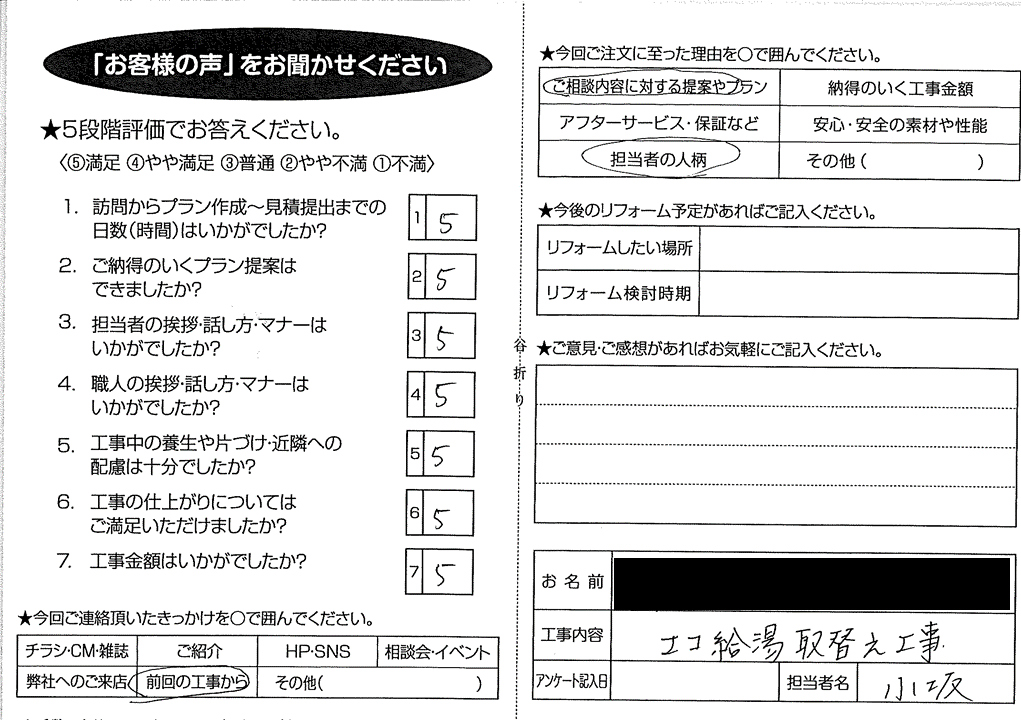 「お客様の声」をお聞かせください
★5段階評価でお答えください。
〈⑤満足 ④やや満足 ③普通 ②やや不満 ①不満〉
1. 訪問からプラン作成～見積提出までの
日数(時間)はいかがでしたか?
1 5
2. ご納得のいくプラン提案は
できましたか?
2 5
3. 担当者の挨拶・話し方・マナーは
いかがでしたか?
3 5
4. 職人の挨拶・話し方・マナーは
いかがでしたか?
4 5
5. 工事中の養生や片づけ・近隣への
配慮は十分でしたか?
5 5
6. 工事の仕上がりについては
ご満足いただけましたか?
6 5
7. 工事金額はいかがでしたか?
7 5
★今回ご連絡頂いたきっかけを○で囲んでください。
チラシ・CM・雑誌 ご紹介 HP・SNS 相談会・イベント
弊社へのご来店 前回の工事から その他( )
谷折り
★今回ご注文に至った理由を○で囲んでください。
ご相談内容に対する提案やプラン 納得のいく工事金額
アフターサービス・保証など 安心・安全の素材や性能
担当者の人柄 その他( )
★今後のリフォーム予定があればご記入ください。
リフォームしたい場所
リフォーム検討時期
★ご意見・ご感想があればお気軽にご記入ください。
お名前
工事内容 エコ給湯取替え工事
アンケート記入日 担当者名 小坂